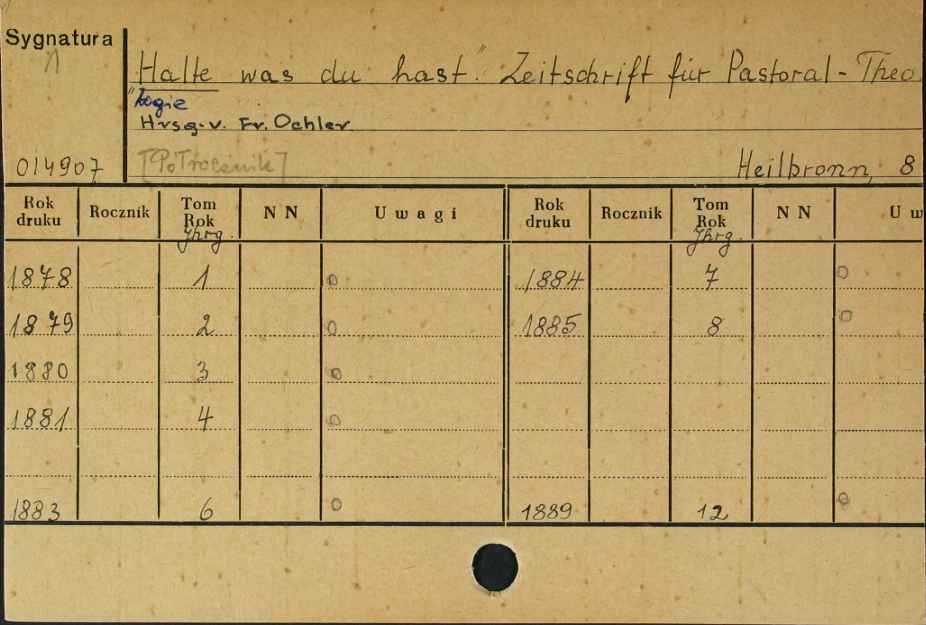 Sygnatura
Halte was du hast." Zeitschrift für Pastoral-Theo
"logie
Hrsg. v. Fr. Oehler
014907 [Półrocznik] Heilbronn, 8
Rok druku Rocznik Tom Rok Jhrg. NN Uwagi Rok druku Rocznik Tom Rok Jhrg. NN Uw
1878 1 o 1884 7 o
1879 2 o 1885 8 o
1880 3 o
1881 4 o
1883 6 o 1889 12 o